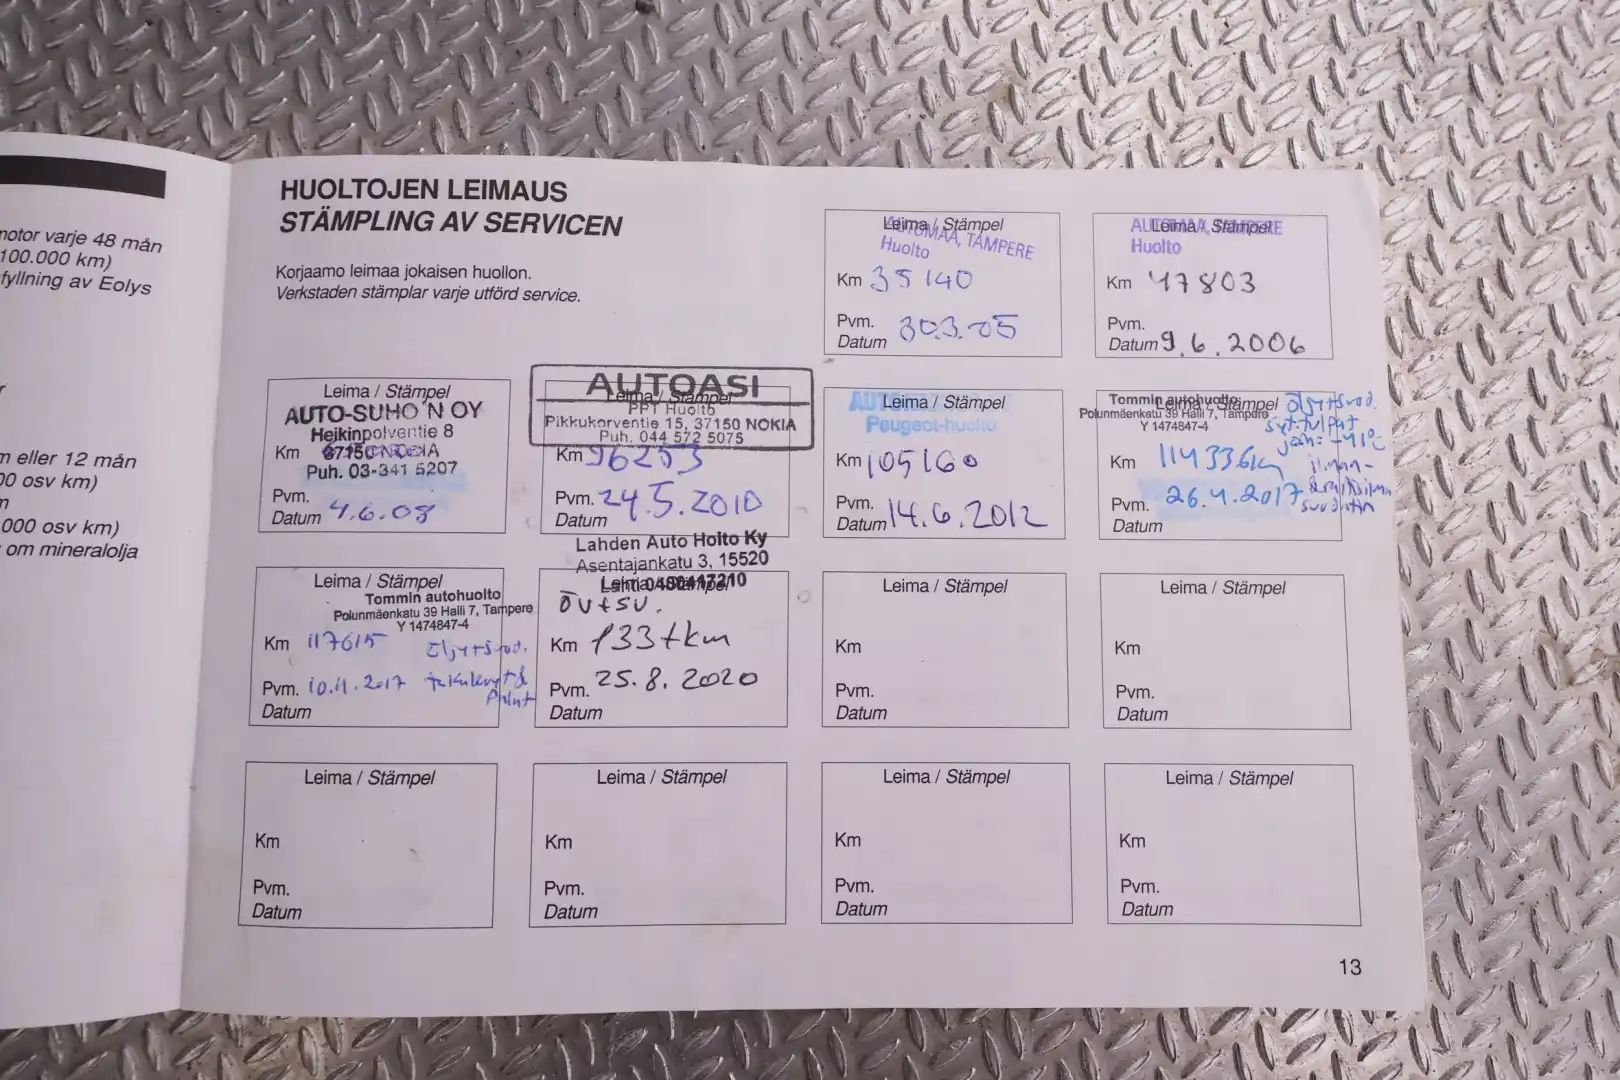 notor varje 48 mån
100.000 km)
fyllning av Eolys
m eller 12 mån
00 osv km)
000 osv km)
om mineralolja
HUOLTOJEN LEIMAUS
STÄMPLING AV SERVICEN
Korjaamo leimaa jokaisen huollon.
Verkstaden stämplar varje utförd service.
Leima / Stämpel
AUTOMAA, TAMPERE
Huolto
Km 35140
Pvm.
Datum 30.3.-05
Leima / Stämpel
AUTOMAA, TAMPERE
Huolto
Km 47803
Pvm.
Datum 9.6.2006
Leima / Stämpel
AUTO-SUHO'N OY
Heikinpolventie 8
37150 NOKIA
Km
Puh. 03-341 5207
Pvm.
Datum 4.6.08
AUTOASI
Leima / Stämpel
PPT Huolto
Pikkukorventie 15, 37150 NOKIA
Puh. 044 572 5075
Km 96253
Pvm. 24.5.2010
Datum
Leima / Stämpel
Peugeot-huolto
Km 105160
Pvm.
Datum 14.6.2012
Leima / Stämpel
Tommin autohuolto
Polunmäenkatu 39 Halli 7, Tampere
Y 1474847-4
Öljyt+svod.
syt.tulpat
jääh: -41°C
Km 114336km
ilman-
suodatin
Pvm. 26.4.2017
Datum
Leima / Stämpel
Tommin autohuolto
Polunmäenkatu 39 Halli 7, Tampere
Y 1474847-4
Km 117615
Öljyt+svod.
Pvm. 10.11.2017
Datum
Lahden Auto Holto Ky
Asentajankatu 3, 15520
Lahti 0400417210
Leima / Stämpel
Öv+su.
Km 133tkm
Pvm. 25.8.2020
Datum
Leima / Stämpel
Km
Pvm.
Datum
Leima / Stämpel
Km
Pvm.
Datum
Leima / Stämpel
Km
Pvm.
Datum
Leima / Stämpel
Km
Pvm.
Datum
Leima / Stämpel
Km
Pvm.
Datum
Leima / Stämpel
Km
Pvm.
Datum
13